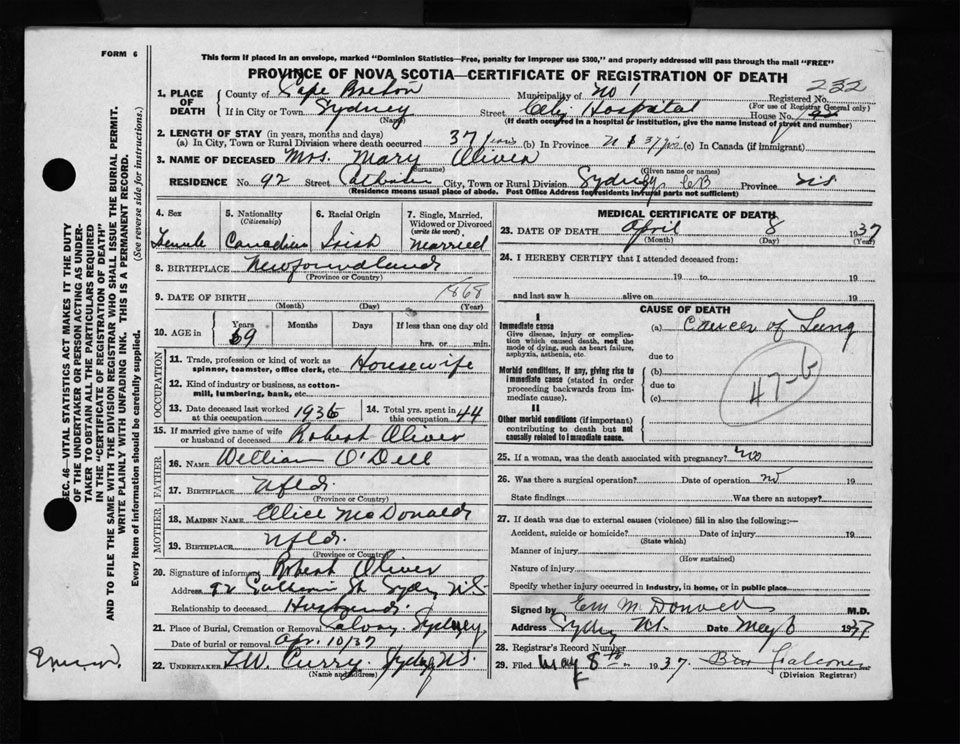 FORM 6
This form if placed in an envelope, marked "Dominion Statistics—Free, penalty for improper use $300," and properly addressed will pass through the mail "FREE"
PROVINCE OF NOVA SCOTIA—CERTIFICATE OF REGISTRATION OF DEATH
232
1. PLACE OF DEATH
County of Cape Breton Municipality of No 1 Registered No.
(For use of Registrar General only)
If in City or Town Sydney Street City Hospital House No.
(Name) (If death occurred in a hospital or institution, give the name instead of street and number)
2. LENGTH OF STAY (in years, months and days)
(a) In City, Town or Rural Division where death occurred 37 years (b) In Province N S 37 yrs (c) In Canada (if immigrant)
3. NAME OF DECEASED Mrs. Mary Oliver
(Surname) (Given name or names)
RESIDENCE No. 92 Street City, Town or Rural Division Sydney CB Province NS
(Residence means usual place of abode. Post Office Address for residents in rural parts not sufficient)
4. Sex
Female
5. Nationality (Citizenship)
Canadian
6. Racial Origin
Irish
7. Single, Married, Widowed or Divorced (write the word)
Married
8. BIRTHPLACE Newfoundland
(Province or Country)
9. DATE OF BIRTH 1868
(Month) (Day) (Year)
10. AGE in Years Months Days If less than one day old
69 hrs. or min.
OCCUPATION
11. Trade, profession or kind of work as spinner, teamster, office clerk, etc. Housewife
12. Kind of industry or business, as cotton-mill, lumbering, bank, etc.
13. Date deceased last worked at this occupation 1936
14. Total yrs. spent in this occupation 44
15. If married give name of wife or husband of deceased Robert Oliver
FATHER
16. NAME William O'Dell
17. BIRTHPLACE Nfld.
(Province or Country)
MOTHER
18. MAIDEN NAME Alice McDonald
19. BIRTHPLACE Nfld.
(Province or Country)
20. Signature of informant Robert Oliver
Address 92 St Sydney NS
Relationship to deceased Husband.
21. Place of Burial, Cremation or Removal Calvary Sydney
Date of burial or removal Apr. 10/37
22. UNDERTAKER T.W. Curry, Sydney N.S.
(Name and address)
MEDICAL CERTIFICATE OF DEATH
23. DATE OF DEATH April 8 1937
(Month) (Day) (Year)
24. I HEREBY CERTIFY that I attended deceased from:
19 to 19
and last saw h alive on 19
CAUSE OF DEATH
I
Immediate cause (a) Cancer of Lung
Give disease, injury or complication which caused death, not the mode of dying, such as heart failure, asphyxia, asthenia, etc.
due to
Morbid conditions, if any, giving rise to immediate cause (stated in order proceeding backwards from immediate cause).
(b)
due to
(c)
47-b
II
Other morbid conditions (if important) contributing to death but not causally related to immediate cause.
25. If a woman, was the death associated with pregnancy? No
26. Was there a surgical operation? Date of operation No 19
State findings Was there an autopsy?
27. If death was due to external causes (violence) fill in also the following:—
Accident, suicide or homicide? Date of injury 19
(State which)
Manner of injury
(How sustained)
Nature of injury
Specify whether injury occurred in industry, in home, or in public place
Signed by McDonald M.D.
Address Sydney N.S. Date May 6 1937
28. Registrar's Record Number
29. Filed May 8th 1937 Falconer
(Division Registrar)
SEC. 46—VITAL STATISTICS ACT MAKES IT THE DUTY
OF THE UNDERTAKER OR PERSON ACTING AS UNDER-
TAKER TO OBTAIN ALL THE PARTICULARS REQUIRED
IN THE "CERTIFICATE OF REGISTRATION OF DEATH"
AND TO FILE THE SAME WITH THE DIVISION REGISTRAR WHO SHALL ISSUE THE BURIAL PERMIT.
WRITE PLAINLY WITH UNFADING INK. THIS IS A PERMANENT RECORD.
Every item of information should be carefully supplied. (See reverse side for instructions.)